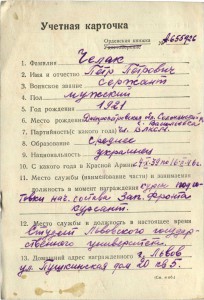 Учетная карточка
Орденская книжка
А655926
1. Фамилия Челак
2. Имя и отчество Пётр Петрович
3. Воинское звание Сержант
4. Пол мужской
5. Год рождения 1921
6. Место рождения Днепропетровская обл.
7. Партийность(с какого года) чл. ВЛКСМ
8. Образование среднее
9. Национальность украинец
10. С какого года в Красной Армии
11. Место службы (наименование части) и занимаемая
должность в момент награждения курсы подго-
товки нач. состава Зап. Фронта
курсант.
12. Место службы и должность в настоящее время
Студент Львовского государ-
ственного университета.
13. Домашний адрес награжденного г. Львов
ул. Пушкинская дом 20 кв 5.